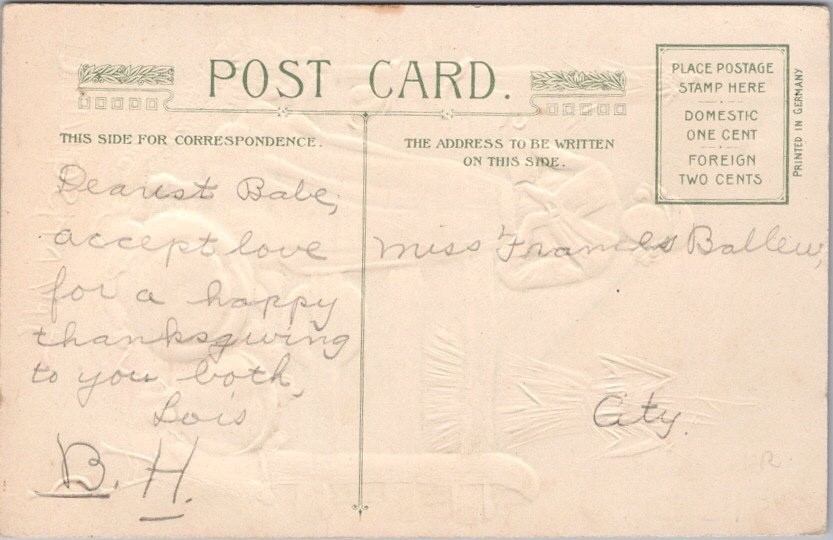 POST CARD.
PLACE POSTAGE
STAMP HERE
DOMESTIC
ONE CENT
FOREIGN
TWO CENTS
PRINTED IN GERMANY
THIS SIDE FOR CORRESPONDENCE.
THE ADDRESS TO BE WRITTEN
ON THIS SIDE.
Dearest Babe,
accept love
for a happy
thanksgiving
to you both,
Lois
B. H.
Miss Frances Ballew,
City.